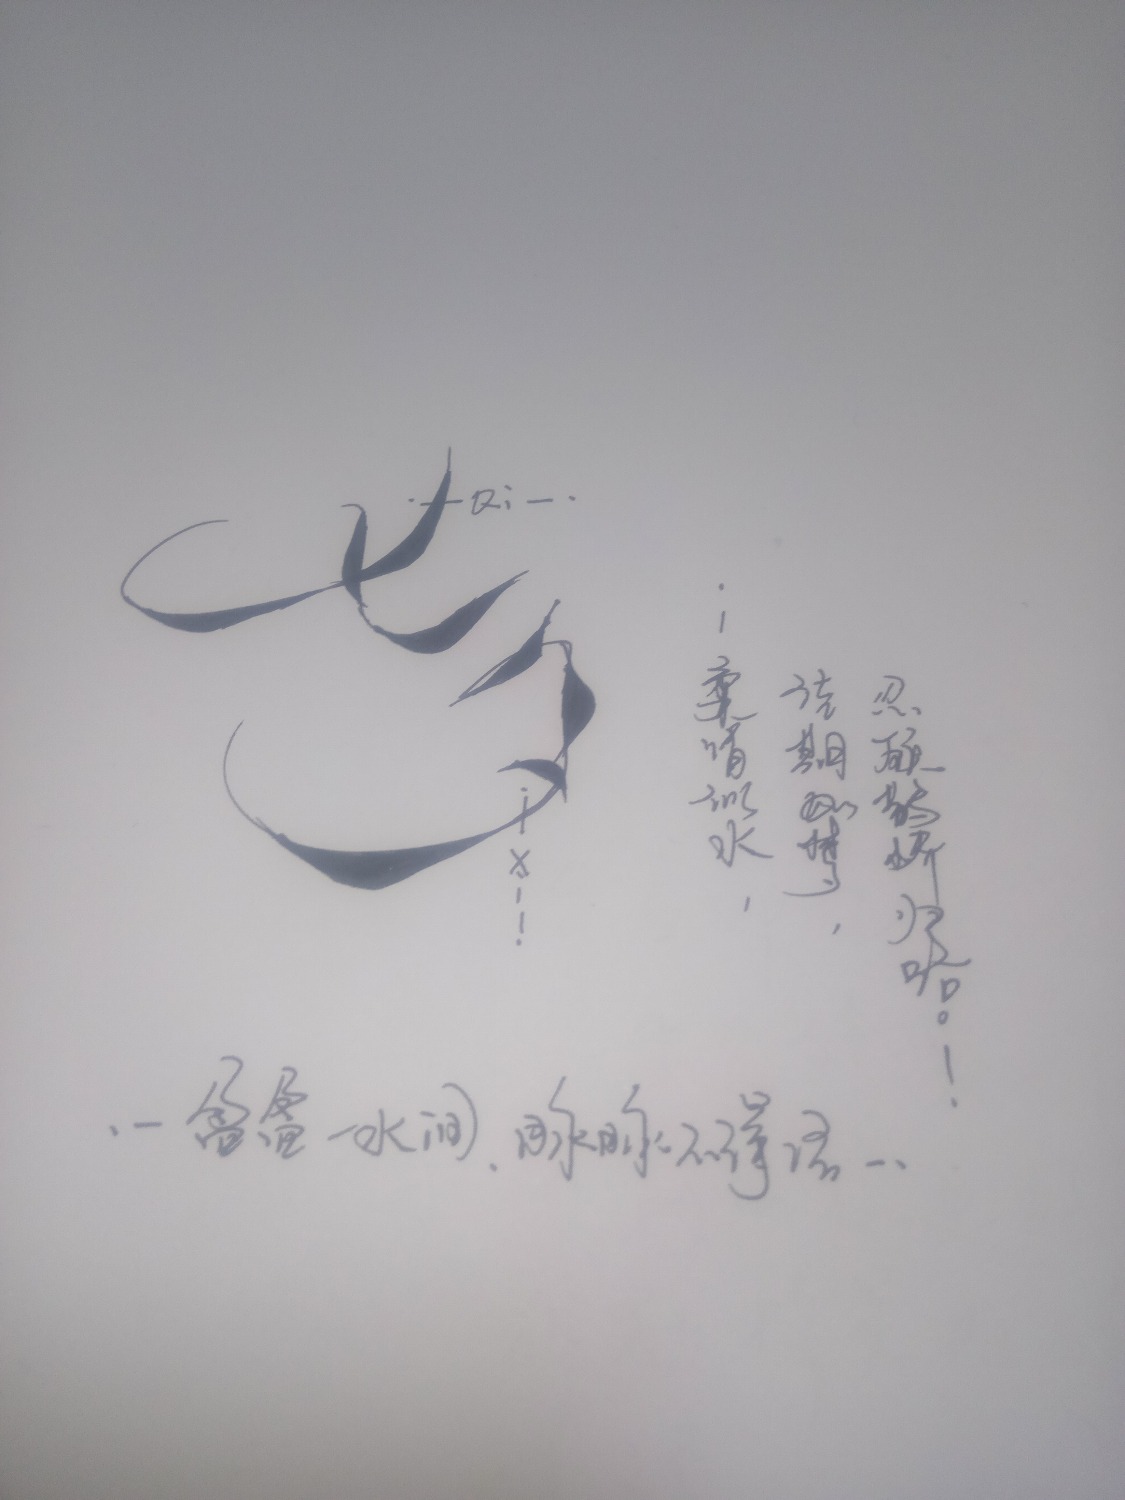 七夕
Qi
xi!
柔情似水,
佳期如梦,
忍顾鹊桥归路。!
盈盈一水间.脉脉不得语